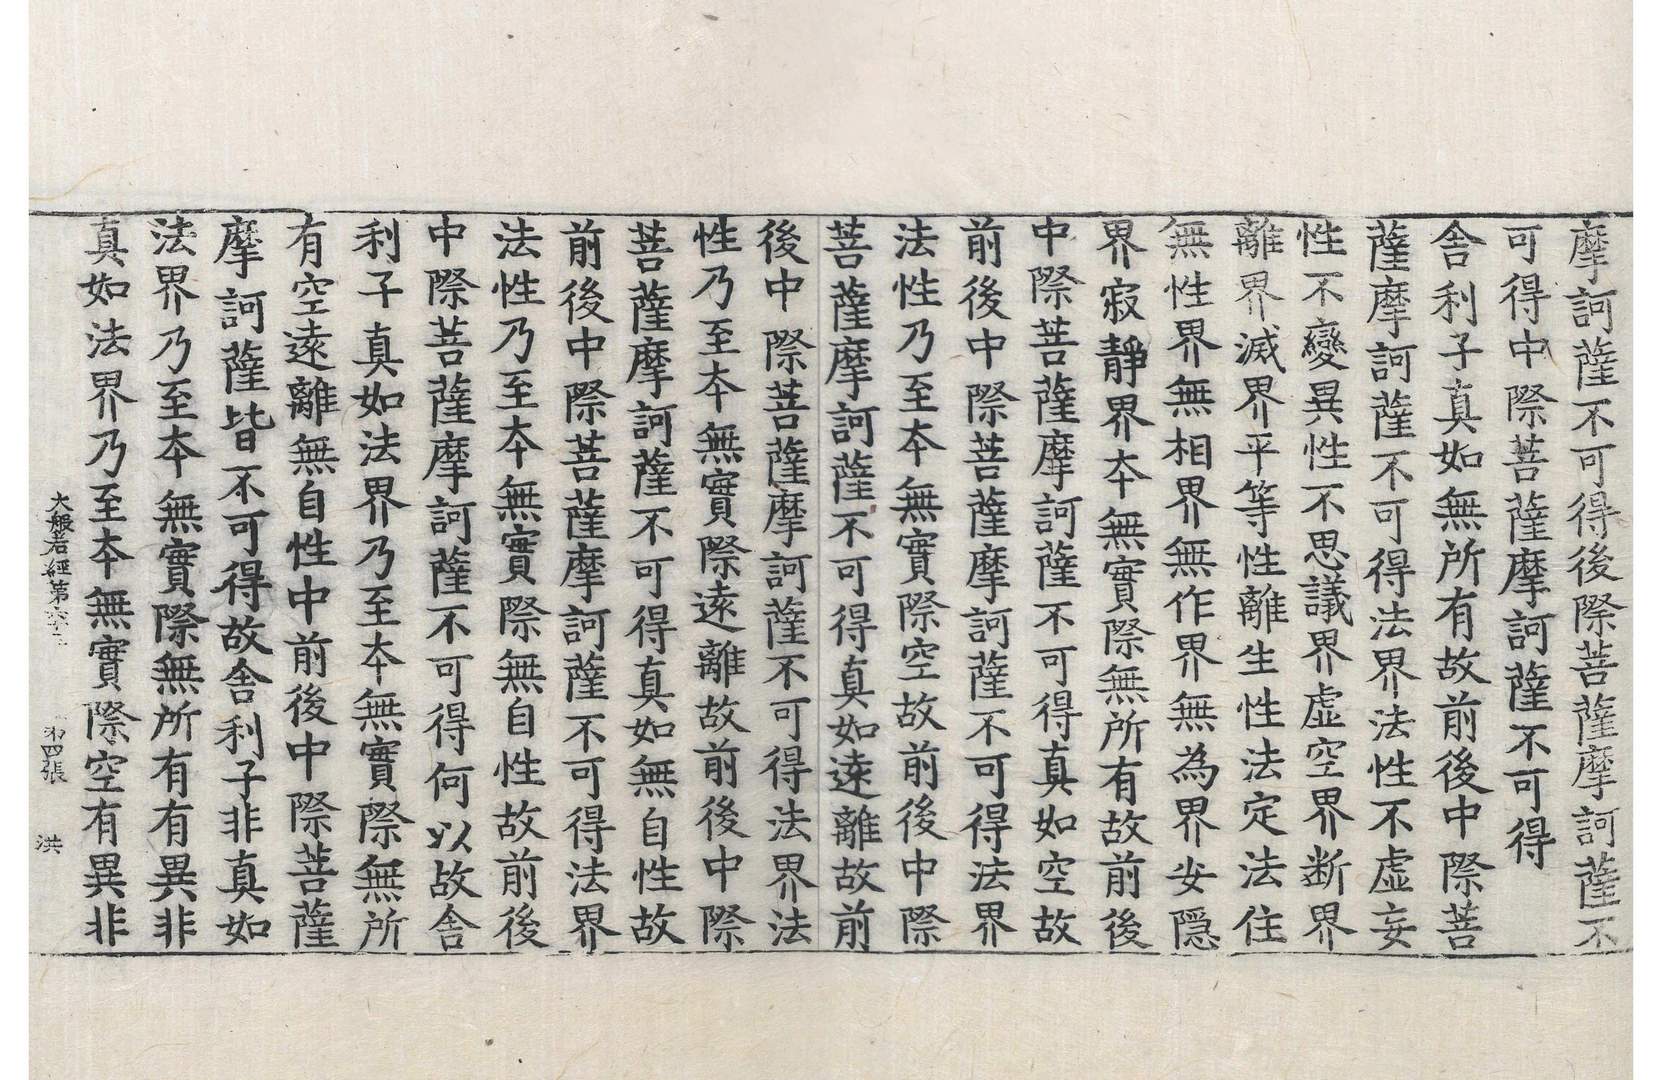 摩訶薩不可得後際菩薩摩訶薩不
可得中際菩薩摩訶薩不可得
舍利子真如無所有故前後中際菩
薩摩訶薩不可得法界法性不虛妄
性不變異性不思議界虛空界斷界
離界滅界平等性離生性法定法住
無性界無相界無作界無為界安隱
界寂靜界本無實際無所有故前後
中際菩薩摩訶薩不可得真如空故
前後中際菩薩摩訶薩不可得法界
法性乃至本無實際空故前後中際
菩薩摩訶薩不可得真如遠離故前
後中際菩薩摩訶薩不可得法界法
性乃至本無實際遠離故前後中際
菩薩摩訶薩不可得真如無自性故
前後中際菩薩摩訶薩不可得法界
法性乃至本無實際無自性故前後
中際菩薩摩訶薩不可得何以故舍
利子真如法界乃至本無實際無所
有空遠離無自性中前後中際菩薩
摩訶薩皆不可得故舍利子非真如
法界乃至本無實際無所有有異非
真如法界乃至本無實際空有異非
大般若經第六十二 第四張 洪